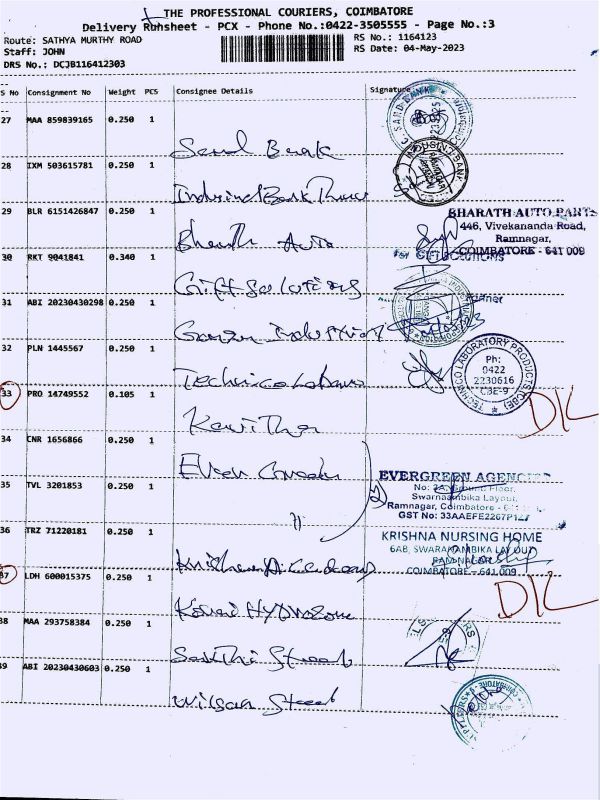 THE PROFESSIONAL COURIERS, COIMBATORE
Delivery Runsheet - PCX - Phone No.:0422-3505555 - Page No.:3
Route: SATHYA MURTHY ROAD
Staff: JOHN
DRS No.: DCJB116412303
RS No.: 1164123
RS Date: 04-May-2023
S No Consignment No Weight PCS Consignee Details Signature
27 MAA 859839165 0.250 1
Sand Bank
28 IXM 503615781 0.250 1
IndusindBank
29 BLR 6151426847 0.250 1
BHARATH AUTO PARTS
446, Vivekananda Road,
Ramnagar,
COIMBATORE - 641 009
Bharath Auto
30 RKT 9041841 0.340 1
For GIFT SOLUTIONS
Gift Solutions
31 ABI 20230430298 0.250 1
32 PLN 1445567 0.250 1
TECHNICO LABORATORY PRODUCTS (CBE)
Ph:
0422
2230616
CBE-9
33 PRO 14749552 0.105 1
D/L
Kavitha
34 CNR 1656866 0.250 1
35 TVL 3201853 0.250 1
EVERGREEN
Ground Floor,
Swarnaambika Layout,
Ramnagar, Coimbatore -
GST No: 33AAEFE2267P1Z7
〃
36 TRZ 71220181 0.250 1
KRISHNA NURSING HOME
6AB, SWARANAMBIKA LAYOUT
RAM NAGAR
COIMBATORE - 641 009
37 LDH 600015375 0.250 1
D/L
Kovai
38 MAA 293758384 0.250 1
Sakthi Steels
39 ABI 20230430603 0.250 1
Wilson Steel